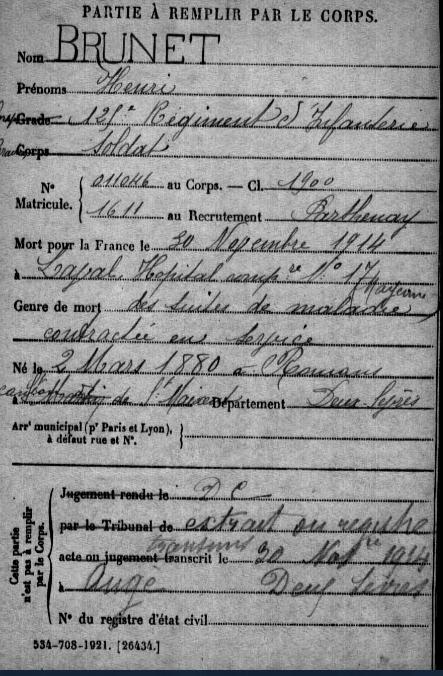 PARTIE À REMPLIR PAR LE CORPS.
Nom BRUNET
Prénoms Henri
Grade 125e Régiment d'Infanterie
Corps Soldat
N° Matricule. { 011046 au Corps. — Cl. 1900
1611 au Recrutement Parthenay
Mort pour la France le 30 Novembre 1914
à Laval Hopital comp re N° 17 Mayenne
Genre de mort des suites de maladie
contractée en service
Né le 2 Mars 1880 à Romans
à de l' Département Deux-Sèvres
Arrt municipal (pr Paris et Lyon), à défaut rue et N°. }
Cette partie n'est pas à remplir par le Corps.
Jugement rendu le D C
par le Tribunal de extrait du registre
acte ou jugement transcrit le 30 1914
à Augé Deux Sèvres
N° du registre d'état civil
534-708-1921. [26434.]